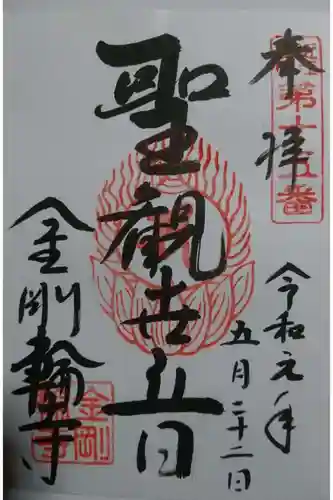 奉拝
第十五番
令和元年
五月二十二日
聖観世音
金剛輪寺
金剛